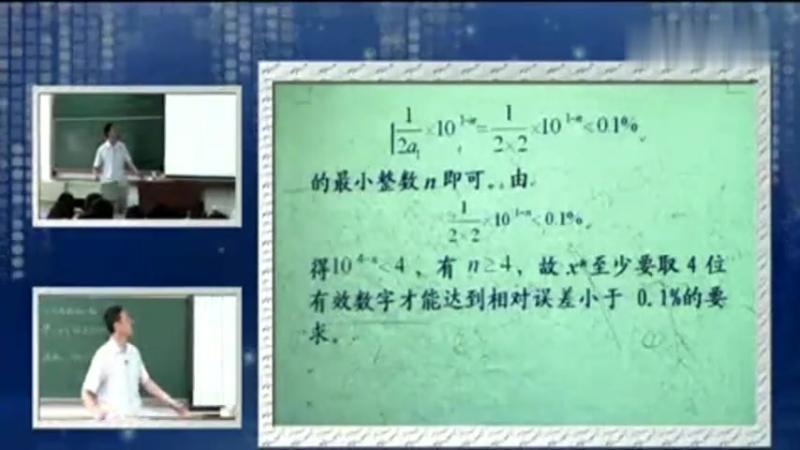 1/2a₁ ×10^{1-n} = 1/2×2 ×10^{1-n} < 0.1%
的最小整数 n 即可。由
1/2×2 ×10^{1-n} < 0.1%
得10^{4-n}<4，有 n≥4，故 x*至少要取 4 位
有效数字才能达到相对误差小于 0.1%的要
求。